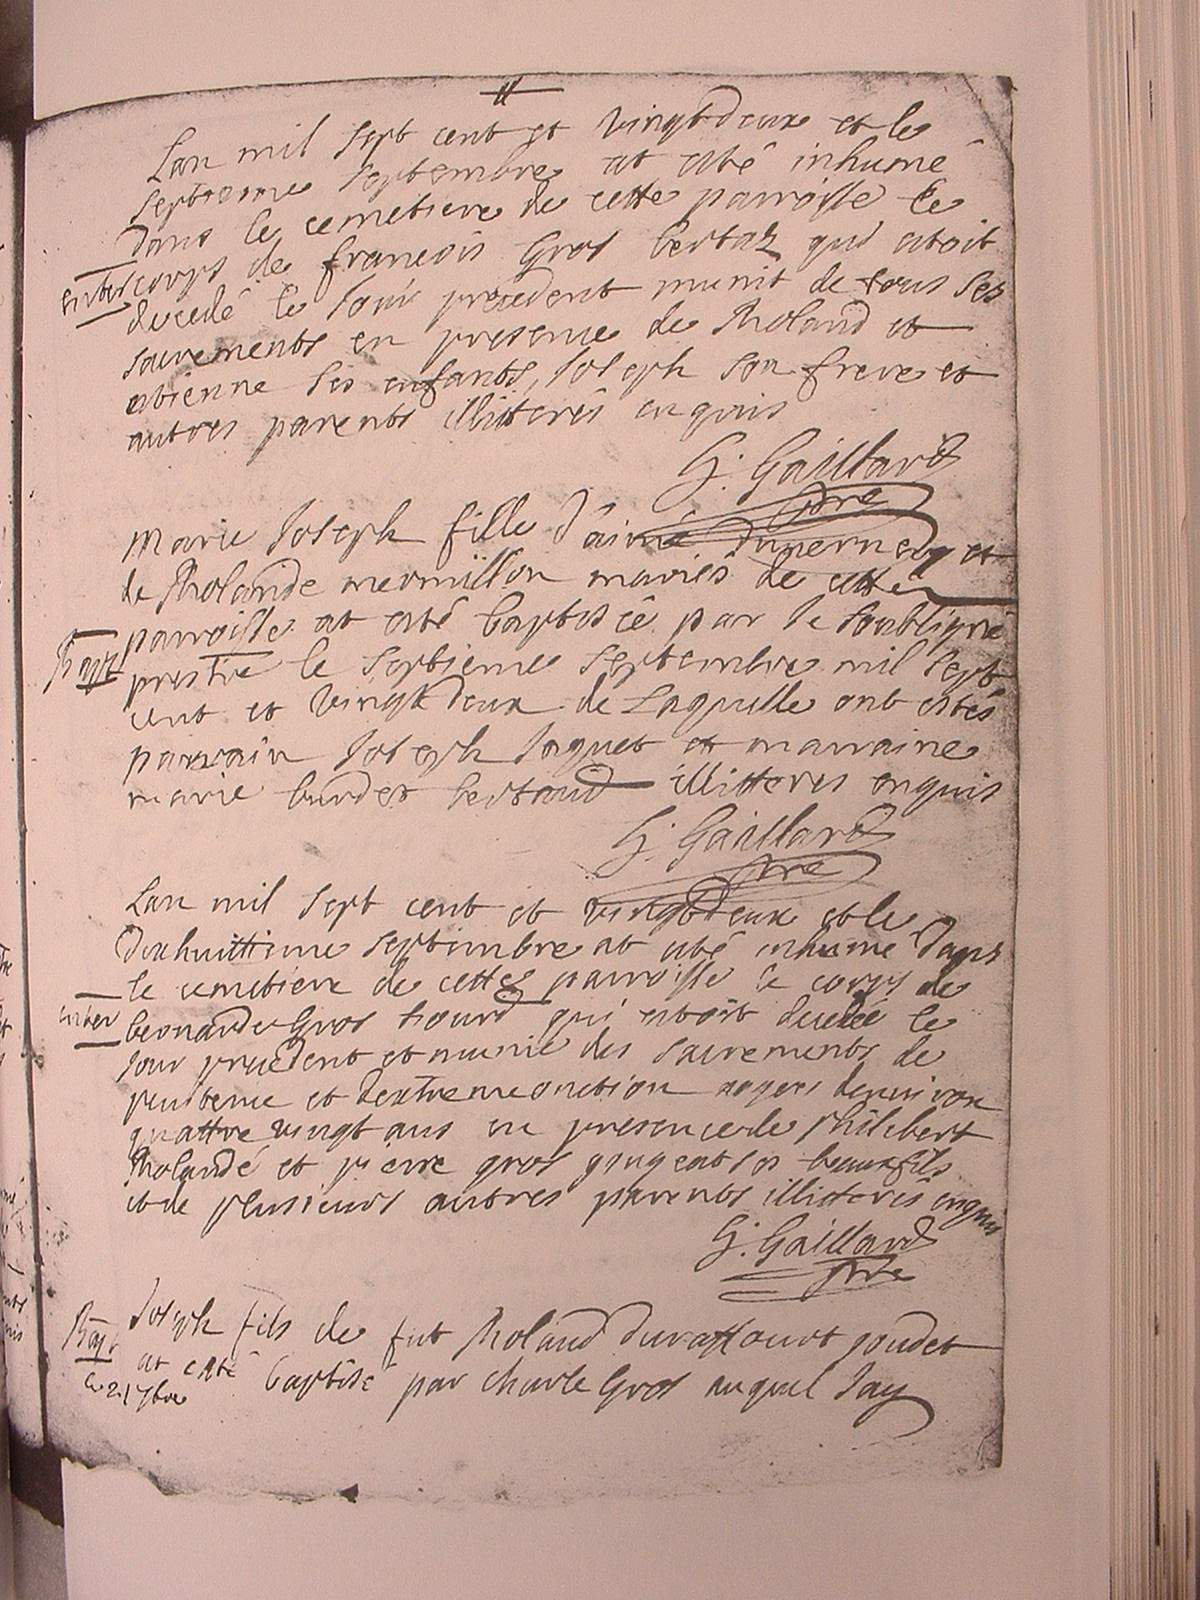 Lan mil sept cent et vingtdeux et le
septieme septembre at esté inhumé
dans le cemetiere de cette parroisse le
enter corps de francois Gros bertaz qui estoit
decedé le Jour precedent munit de tous ses
sacrements en presence de Rholand et
estienne ses enfants, Joseph son frere et
autres parents illitterés enquis
G. Gaillard
pre
Marie Joseph fille d'aimé duverney et
de Rholande mermillon mariés de cette
parroisse at esté baptisée par le soubsigné
Bapt
prestre le septieme septembre mil sept
cent et vingtdeux de Laquelle ont estés
parrain Joseph Jaquet et marraine
marie burdet bertrand illitteres enquis
G. Gaillard
pre
Lan mil sept cent et vingtdeux et le
dixhuittieme septembre at esté inhumé dans
le cemetiere de cette parroisse le corps de
enter
bernarde Gros tiourd qui estoit decedée le
Jour precedent et munie des sacrements de
penitence et dextremeonction agee denviron
quattre vingt ans en presence de Philibert
Rholande et pierre gros ses beaux fils
et de plusieurs autres parents illitterés enquis
G. Gaillard
pre
Joseph fils de fut Rholand duraffourt goudet
Bapt
at esté baptisé par Charle Gros auquel Jay
le 21 7bre